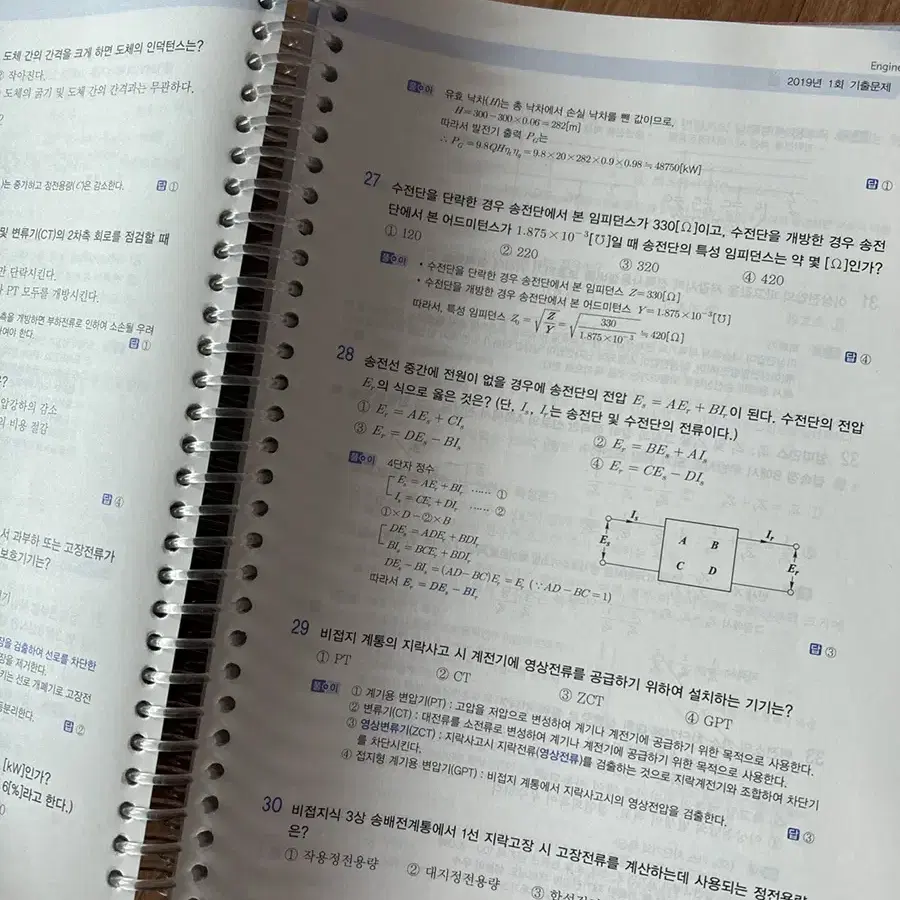 도체 간의 간격을 크게 하면 도체의 인덕턴스는?
② 작아진다.
도체의 굵기 및 도체 간의 간격과는 무관하다.
)는 증가하고 정전용량(C)은 감소한다.
답 ①
및 변류기(CT)의 2차측 회로를 점검할 때
만 단락시킨다.
PT 모두를 개방시킨다.
측을 개방하면 부하전류로 인하여 소손될 우려
여야 한다.
답 ①
압강하의 감소
의 비용 절감
답 ④
서 과부하 또는 고장전류가
보호기기는?
장을 검출하여 선로를 차단한
장을 제거한다.
키는 선로 개폐기로 고장전
분리한다.
답 ②
[kW]인가?
6[%]라고 한다.)
Engine
2019년 1회 기출문제
풀이 유효 낙차(H)는 총 낙차에서 손실 낙차를 뺀 값이므로,
H=300-300×0.06=282[m]
따라서 발전기 출력 P_G는
∴ P_G=9.8QHη_tη_g=9.8×20×282×0.9×0.98≒48750[kW]
답 ①
27 수전단을 단락한 경우 송전단에서 본 임피던스가 330[Ω]이고, 수전단을 개방한 경우 송전
단에서 본 어드미턴스가 1.875×10⁻³[℧]일 때 송전단의 특성 임피던스는 약 몇 [Ω]인가?
① 120 ② 220 ③ 320 ④ 420
풀이 • 수전단을 단락한 경우 송전단에서 본 임피던스 Z=330[Ω]
• 수전단을 개방한 경우 송전단에서 본 어드미턴스 Y=1.875×10⁻³[℧]
따라서, 특성 임피던스 Z₀=√(Z/Y)=√(330/1.875×10⁻³)≒420[Ω]
답 ④
28 송전선 중간에 전원이 없을 경우에 송전단의 전압 E_s=AE_r+BI_r이 된다. 수전단의 전압
E_r의 식으로 옳은 것은? (단, I_s, I_r는 송전단 및 수전단의 전류이다.)
① E_r=AE_s+CI_s ② E_r=BE_s+AI_s
③ E_r=DE_s-BI_s ④ E_r=CE_s-DI_s
풀이 4단자 정수
E_s=AE_r+BI_r ...... ①
I_s=CE_r+DI_r ...... ②
①×D-②×B
DE_s=ADE_r+BDI_r
BI_s=BCE_r+BDI_r
DE_s-BI_s=(AD-BC)E_r=E_r (∵AD-BC=1)
따라서 E_r=DE_s-BI_r
I_s I_r
E_s A B E_r
C D
답 ③
29 비접지 계통의 지락사고 시 계전기에 영상전류를 공급하기 위하여 설치하는 기기는?
① PT ② CT ③ ZCT ④ GPT
풀이 ① 계기용 변압기(PT) : 고압을 저압으로 변성하여 계기나 계전기에 공급하기 위한 목적으로 사용한다.
② 변류기(CT) : 대전류를 소전류로 변성하여 계기나 계전기에 공급하기 위한 목적으로 사용한다.
③ 영상변류기(ZCT) : 지락사고시 지락전류(영상전류)를 검출하는 것으로 지락계전기와 조합하여 차단기
를 차단시킨다.
④ 접지형 계기용 변압기(GPT) : 비접지 계통에서 지락사고시의 영상전압을 검출한다.
답 ③
30 비접지식 3상 송배전계통에서 1선 지락고장 시 고장전류를 계산하는데 사용되는 정전용량
은?
① 작용정전용량 ② 대지정전용량 ③